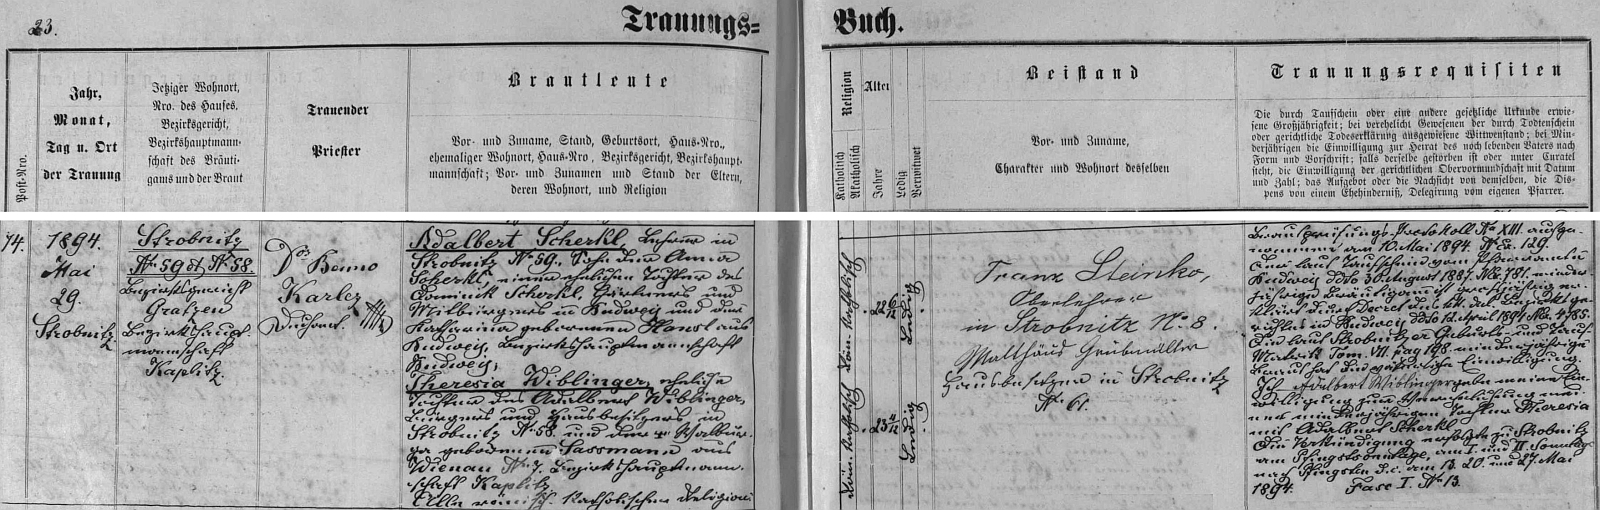 23.
Trauungs=
Buch.
Post-Nro.
Jahr,
Monat,
Tag u. Ort
der Trauung
Jetziger Wohnort,
Nro. des Hauses,
Bezirksgericht,
Bezirkshauptmann-
schaft des Bräuti-
gams und der Braut
Trauender
Priester
Brautleute
Vor- und Zuname, Stand, Geburtsort, Haus-Nro.,
ehemaliger Wohnort, Haus-Nro, Bezirksgericht, Bezirkshaupt-
mannschaft; Vor- und Zunamen und Stand der Eltern,
deren Wohnort, und Religion
Religion
Katholisch
Akatholisch
Alter
Jahre
Ledig
Verwitwet
Beistand
Vor- und Zuname,
Charakter und Wohnort desselben
Trauungsrequisiten
Die durch Taufschein oder eine andere gesetzliche Urkunde erwie-
sene Großjährigkeit; bei verehelicht Gewesenen der durch Todtenschein
oder gerichtliche Todeserklärung ausgewiesene Wittwenstand; bei Min-
derjährigen die Einwilligung zur Heirat des noch lebenden Vaters nach
Form und Vorschrift; falls derselbe gestorben ist oder unter Curatel
steht, die Einwilligung der gerichtlichen Obervormundschaft mit Datum
und Zahl; das Aufgebot oder die Nachsicht von demselben, die Dis-
pens von einem Ehehinderniß, Delegirung vom eigenen Pfarrer.
14.
1894.
Mai
29.
Strobnitz
Strobnitz
No 59 et No 58.
Bezirksgericht
Gratzen
Bezirkshaupt-
mannschaft
Kaplitz
Dr. Benno
Karlez
Dechant
Adalbert Scherkl, Lehrer in
Strobnitz No 59. Sohn der Anna
Scherkl, einer ehelichen Tochter des
Dominik Scherkl, Gärtners und
Mitbürgers in Budweis und der
Katharina geborenen Hansl aus
Budweis, Bezirkshauptmannschaft
Budweis;
Theresia Wiblinger, eheliche
Tochter des Adalbert Wiblinger,
Bürgers und Hausbesitzers in
Strobnitz No 58. und der Walbur-
ga geborenen Sassmann aus
Wienau No 7. Bezirkshauptmann-
schaft Kaplitz
Alle römisch-katholischer Religion
Röm. katholisch
22 6/12
Ledig
Römisch katholisch
23 4/12
Ledig
Franz Steinko,
Oberlehrer
in Strobnitz No. 8.
Matthäus Grubmüller
Hausbesitzer in Strobnitz
No 61.
Brautprüfungs-Protokoll No XIII. aufge-
nommen am 10. Mai 1894. No E. 129.
Der laut Taufschein vom Pfarramte
Budweis ddo 30. August 1887 No. 781. minder-
jährige Bräutigam ist großjährig er-
klärt durch Decret des k. k. del. Bezirksge-
richtes in Budweis ddo 12. April 1894 No. 4785.
Die laut Strobnitzer Geburts- und Tauf-
Matrik Tom. VII. pag 198. minderjährige
Braut hat die väterliche Einwilligung.
Ich Adalbert Wiblinger gebe meine Ein-
willigung zur Verehelichung mei-
ner minderjährigen Tochter Theresia
mit Adalbert Scherkl.
Die Verkündigung erfolgte zu Strobnitz
am Pfingstsonntage, am I. und II. Sonntage
nach Pfingsten d. i. am 13. 20. und 27. Mai
1894. Fasc I. No 13.